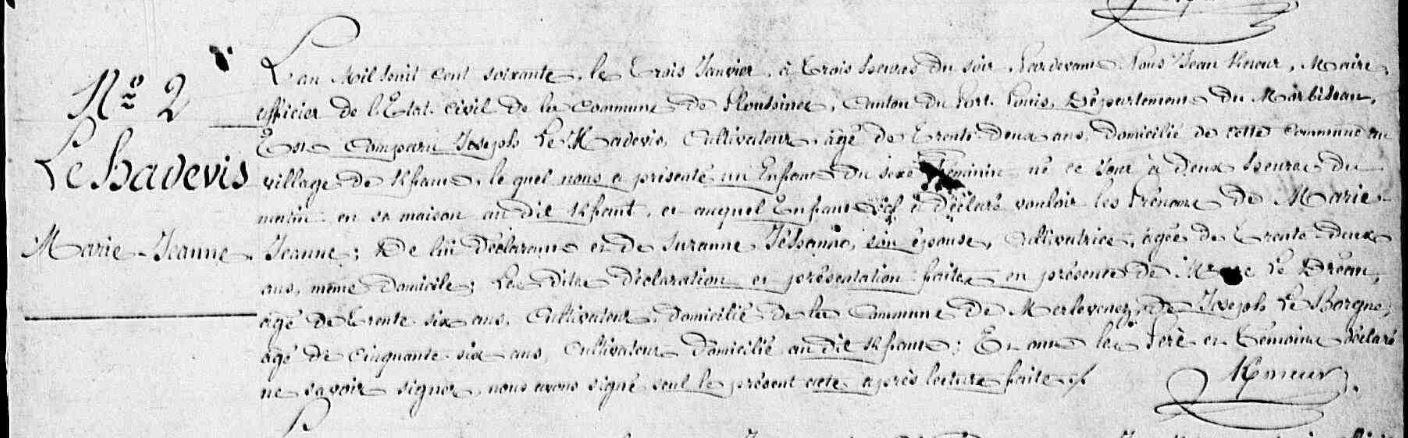 Nº 2
Le hadevis
Marie Jeanne
L'an Mil huit cent soixante, le Trois Janvier, à Trois heures du soir, Pardevant Nous Jean Kmeur, Maire,
officier de l'Etat civil de la commune de Plouhinec, Canton du Port Louis, Département du Morbihan,
Est comparu Joseph Le Hadevis, Cultivateur, âgé de Trente deux ans, domicilié de cette commune au
village de Kfant, le quel nous a présenté un Enfant du sexe Féminin né ce jour à deux heures du
matin en sa maison au dit Kfant, et auquel Enfant il a déclaré vouloir les Prénoms de Marie
Jeanne; De lui déclarant et de Suzanne son épouse, Cultivatrice, âgée de Trente deux
ans, même domicile; Les dites déclaration et présentation faites en présence de Le Dréan,
âgé de Trente six ans, Cultivateur, domicilié de la Commune de Merlevenez, de Joseph Le Borgne,
âgé de cinquante six ans, Cultivateur domicilié au dit Kfant; Et ont les Père et Témoins déclaré
ne savoir signer, nous avons signé seul le présent acte après lecture faite
Kmeur